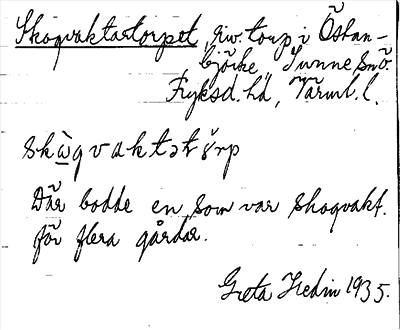 Skogvaktartorpet, riv. torp i Östan-
björke, Sunne snö.
Fryksd. hd, Värml. l.
skὼgvaktətŏrp
Där bodde en, som var skogvakt.
för flera gårdar.
Greta Hedin 1935.